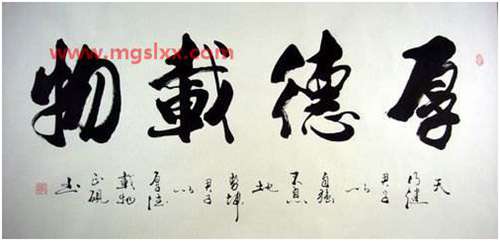 厚德載物
www.mgslxx.com
天行健君子以自强不息地勢坤君子以厚德載物